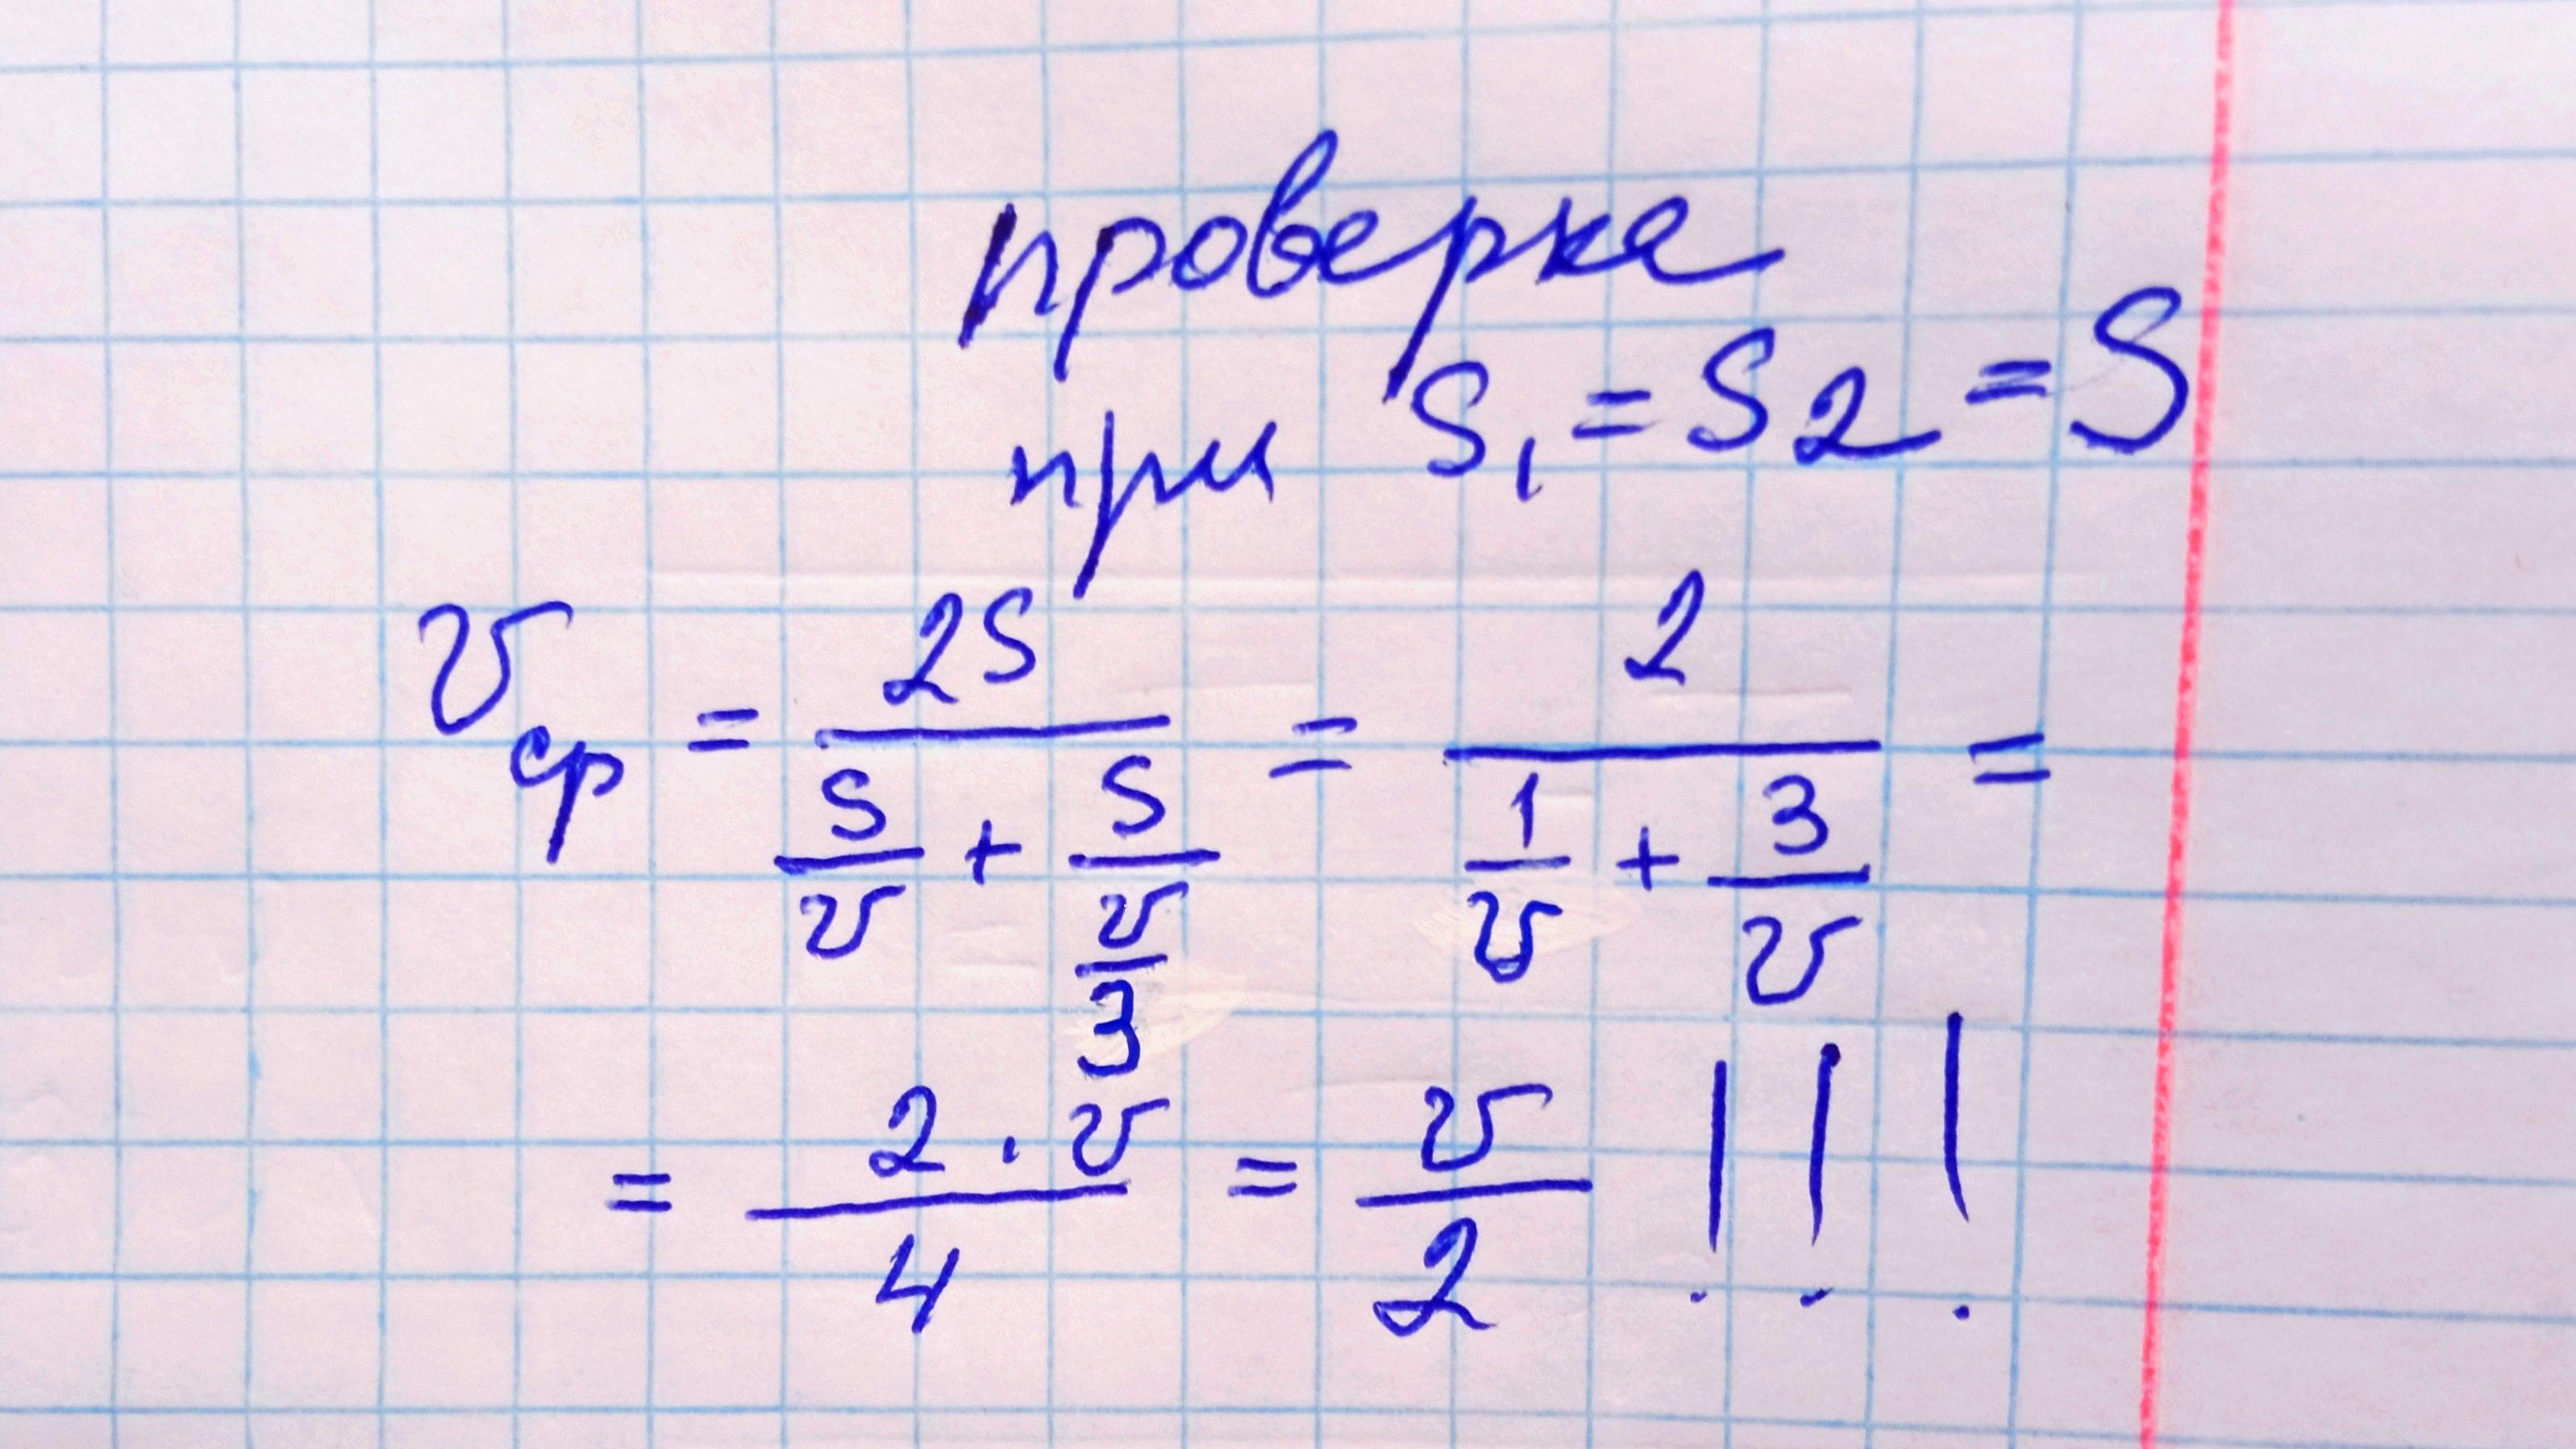 проверка
при S₁ = S₂ = S
v_ср = 2S / (S/v + S/(v/3)) = 2 / (1/v + 3/v) =
= 2 · v / 4 = v / 2 !!!